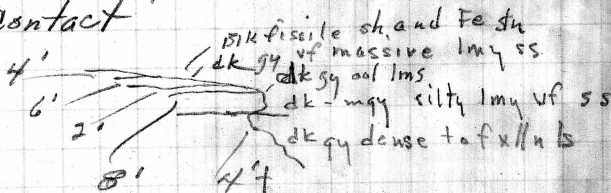 Contact
Blk fissile sh. and Fe stn
dk gy vf massive lmy ss
4' dk gy ool lms
6' dk - mgy silty lmy vf ss
2' dk gy dense to f xlln ls
8' 4'+